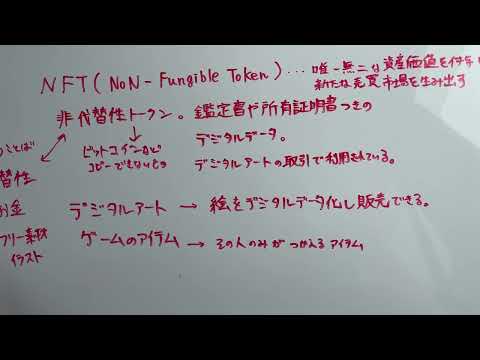 NFT (NON-Fungible Token) ... 唯一無二な資産価値を付与
新たな売買市場を生み出す
非代替性トークン。鑑定書や所有証明書つきの
デジタルデータ。
ことば
ビットコインなど
コピーできないもの
デジタルアートの取引で利用されている。
替性
お金
デジタルアート → 絵をデジタルデータ化し販売できる。
フリー素材
イラスト
ゲームのアイテム → その人のみがつかえるアイテム